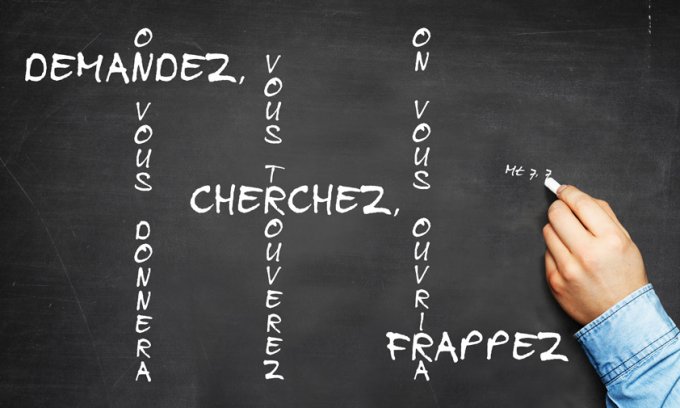 DEMANDEZ,
ON VOUS DONNERA
CHERCHEZ,
VOUS TROUVEREZ
FRAPPEZ
ON VOUS OUVRIRA
Mt 7, 7